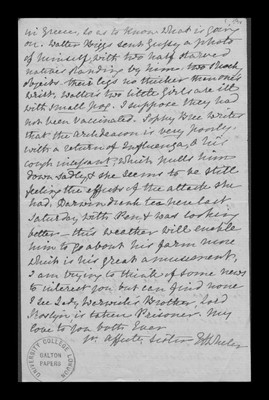 in Greece, so as to know what is going
on. Walter Biggs sent Gussy a photo
of himself with two half starved
natives standing by him two such
objects their legs no thicker than one's
wrist. Walter's two little Girls are ill
with Small Pox. I suppose they had
not been vaccinated. Sophy Bree writes
that the Archdeacon is very poorly
with a return of Influenza, & his
cough incessant, which pulls him
down sadly, & she seems to be still
feeling the effects of the attack she
had. Darwin drank tea here last
Saturday with & was looking
better this weather will enable
him to go about his farm more
which is his great amusement,
I am trying to think of some news
to interest you but can find none
I see Lady Brother, Lord
is taken Prisoner. My
love to you both Ever
yr. affecte. Sister EAWheler
UNIVERSITY COLLEGE LONDON
GALTON
PAPERS